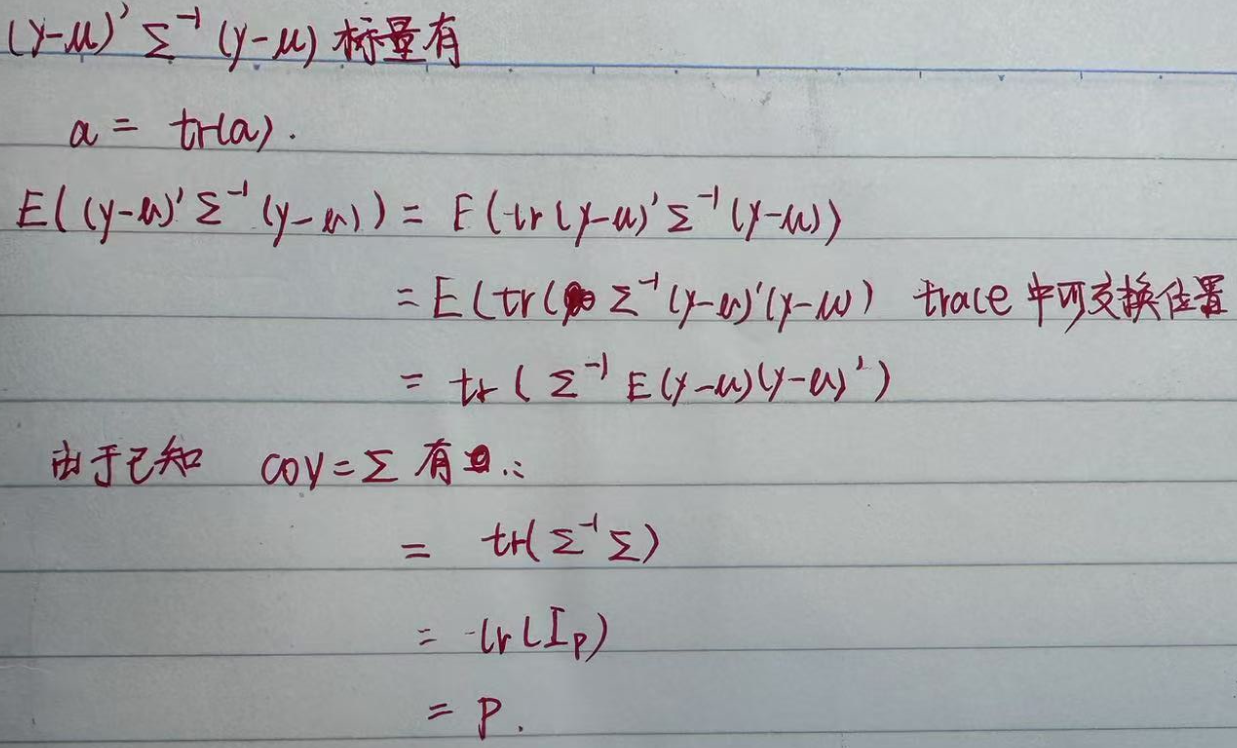 (y-μ)' Σ⁻¹ (y-μ) 标量有
a = tr(a).
E((y-μ)' Σ⁻¹ (y-μ)) = E(tr(y-μ)' Σ⁻¹ (y-μ))
= E(tr( Σ⁻¹ (y-μ)'(y-μ)) trace 中可交换位置
= tr( Σ⁻¹ E(y-μ)(y-μ)')
由于已知 coy = Σ 有 ∴:
= tr(Σ⁻¹ Σ)
= tr(I_p)
= p.